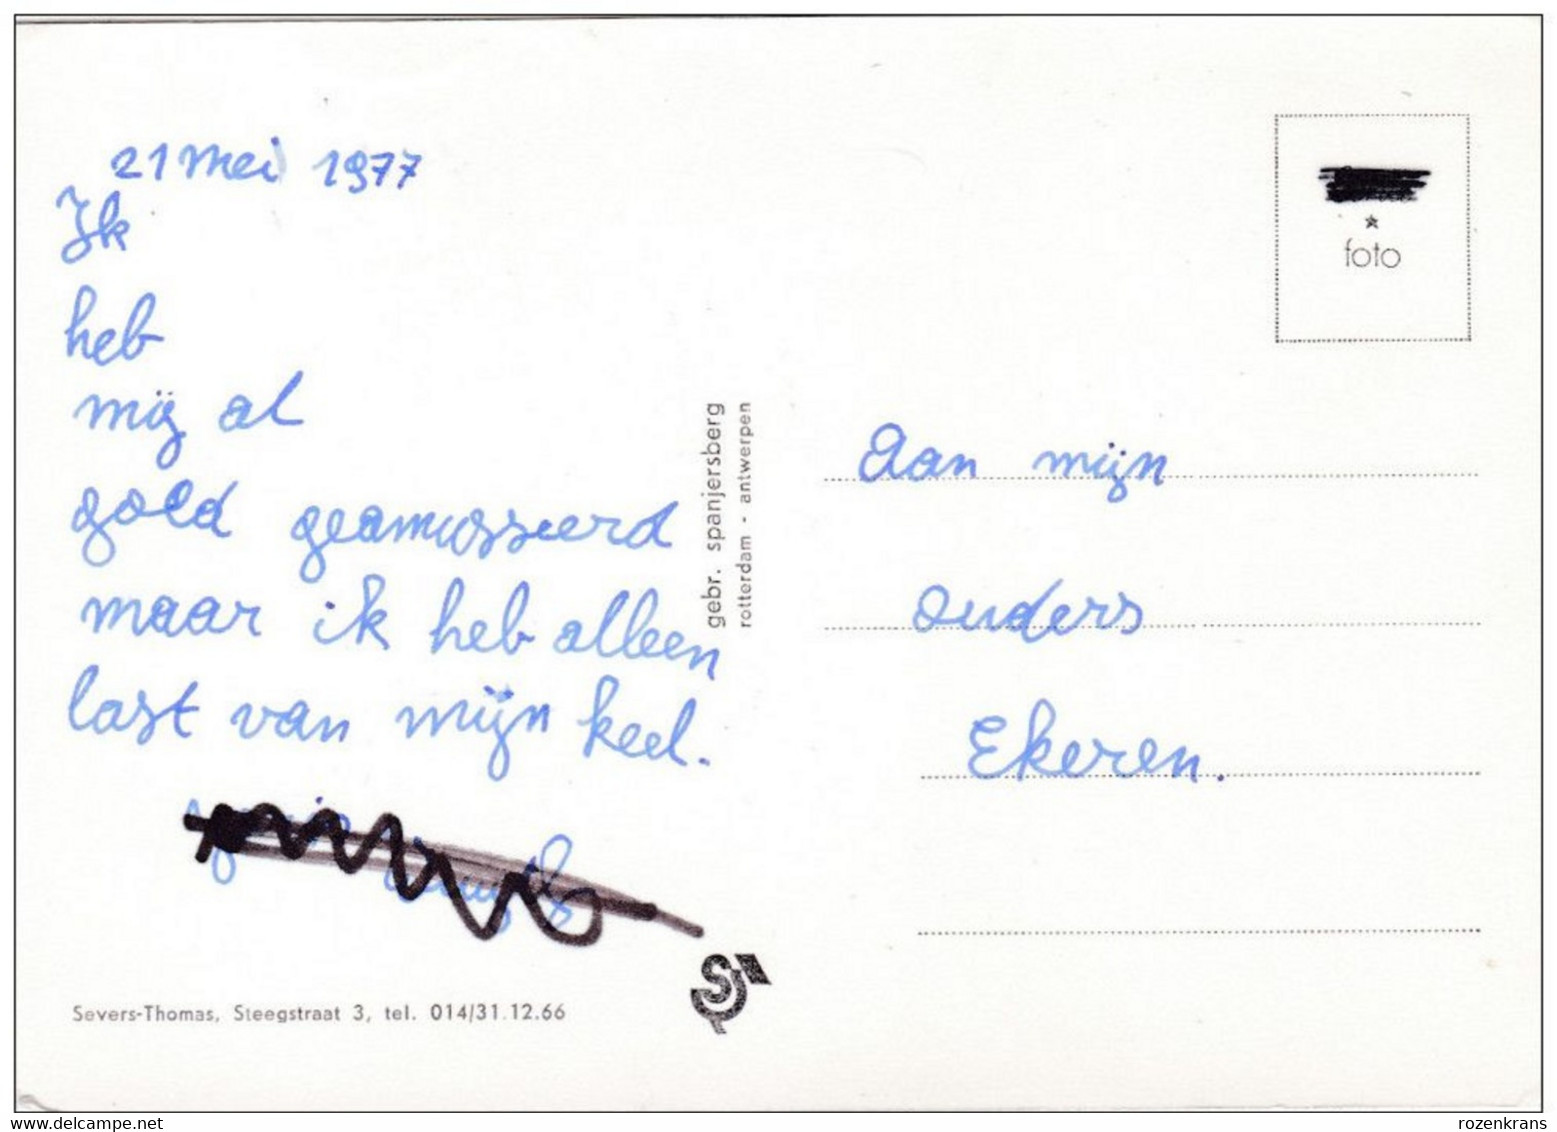 21 mei 1977
Ik
heb
mij al
goed geamusseerd
maar ik heb alleen
last van mijn keel.
Severs-Thomas, Steegstraat 3, tel. 014/31.12.66
gebr. spanjersberg
rotterdam - antwerpen
foto
Aan mijn
ouders
Ekeren.
www.delcampe.net
rozenkrans